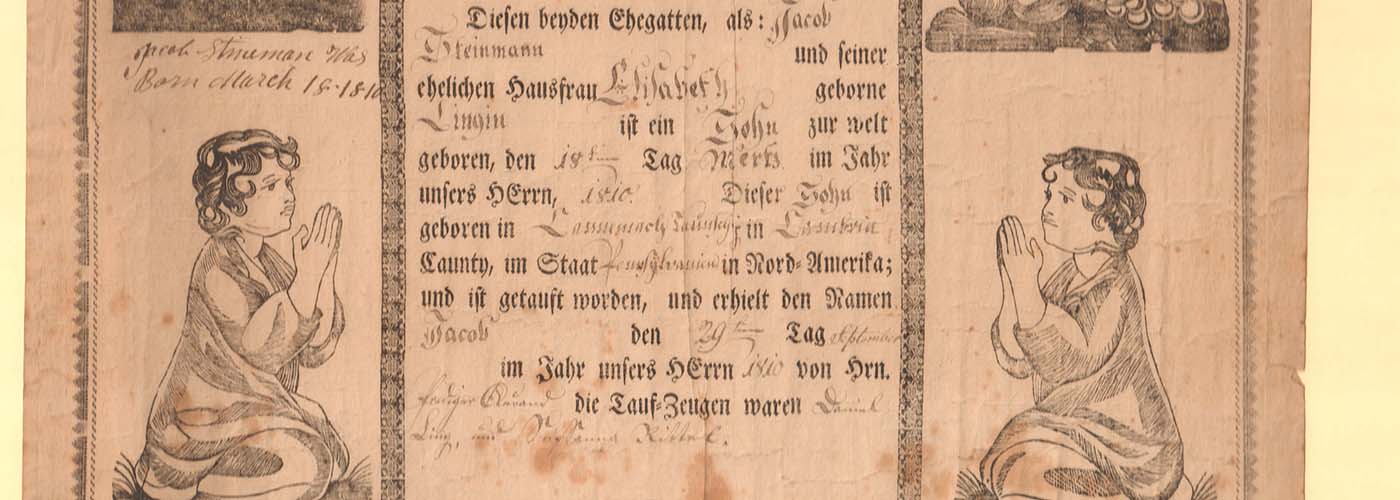 Jacob Stineman Was
Born March 18-1810
Diesen beyden Ehegatten, als: Jacob
Steinmann und seiner
ehelichen Hausfrau Elisabeth geborne
Lingin ist ein Sohn zur welt
geboren, den 18ten Tag Merts im Jahr
unsers HErrn, 1810. Dieser Sohn ist
geboren in Taunschip in Cambria
Caunty, im Staat Pensylvanien in Nord-Amerika;
und ist getauft worden, und erhielt den Namen
Jacob den 29ten Tag September
im Jahr unsers HErrn 1810 von Hrn.
die Tauf-Zeugen waren Daniel
Ling, und Susanna